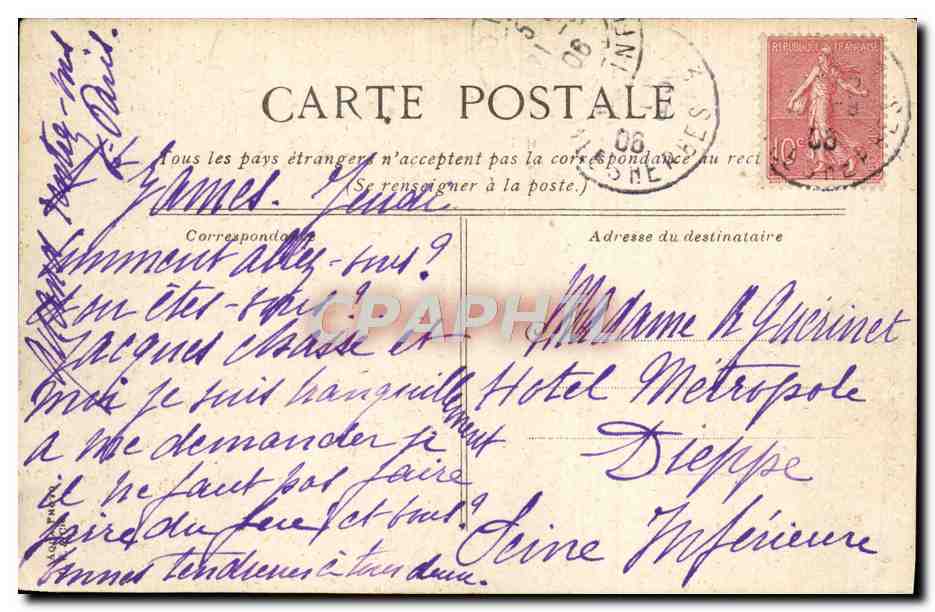 CARTE POSTALE
Tous les pays étrangers n'acceptent pas la correspondance au recto
(Se renseigner à la poste.)
RÉPUBLIQUE FRANÇAISE
10c
06
MALESHERBES
INF
06
06
Correspondance
Adresse du destinataire
à Paris.
James. Jeudi
Comment allez-vous?
et où êtes-vous?
Jacques chasse et
moi je suis tranquillement
a me demander si
il ne faut pas faire
faire du feu, et vous?
bonnes tendresses à tous deux.
Madame R Guérinet
Hotel Métropole
Dieppe
Seine Inférieure
CPAPHIL